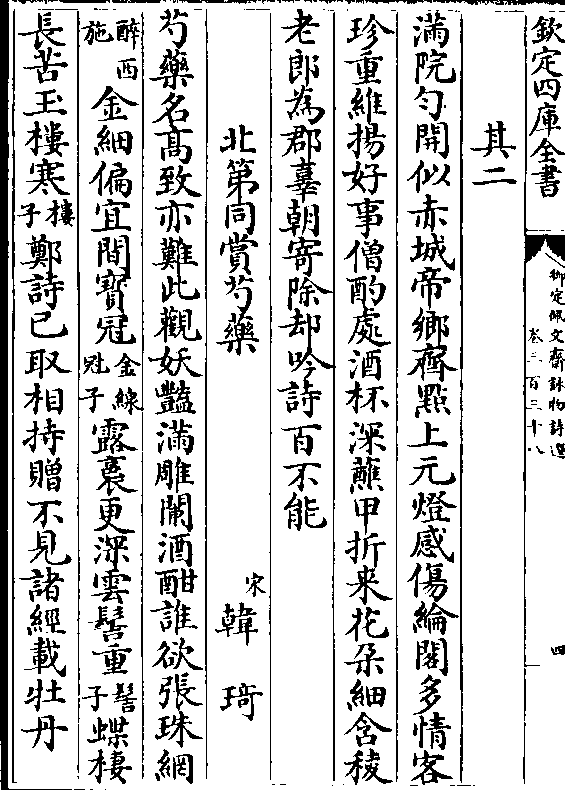 欽定四庫全書
御定佩文齋詠物詩選
卷三百三十八
四
其二
滿院勻開似赤城帝鄉齊點上元燈感傷綸閣多情客
珍重維揚好事僧酌處酒杯深蘸甲折来花朶細含稜
老郎為郡辜朝寄除却吟詩百不能
北第同賞芍藥 宋 韓琦
芍藥名髙致亦難此觀妖豔滿雕闌酒酣誰欲張珠網
醉西施金細偏宜間寶冠金線冠子露裛更深雲髻重髻子蝶棲
長苦玉樓寒樓子鄭詩已取相持贈不見諸經載牡丹